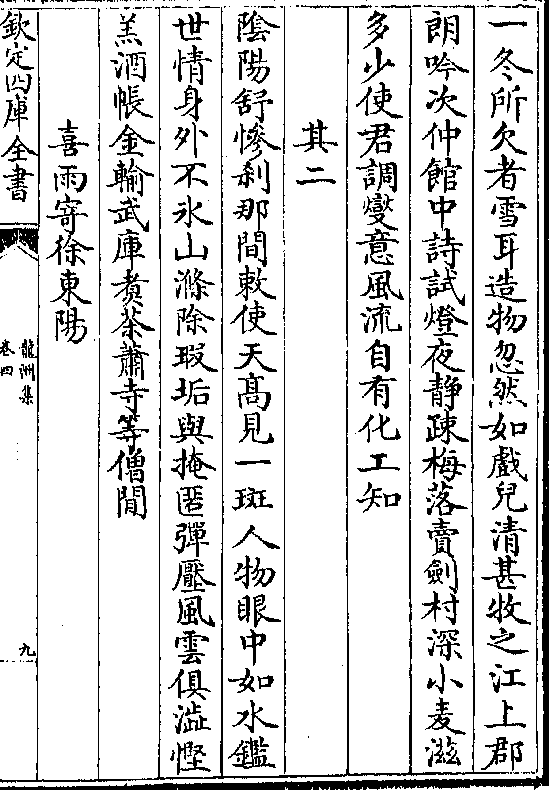 一冬所欠者雪耳造物忽然如戲兒清甚牧之江上郡
朗吟次仲館中詩試燈夜靜疎梅落賣劍村深小麦滋
多少使君調燮意風流自有化工知
其二
陰陽舒慘刹那間敕使天髙見一斑人物眼中如水鑑
世情身外不氷山滌除瑕垢與掩匿彈壓風雲俱澁慳
羔酒帳金輸武庫煑茶蕭寺等僧閒
喜雨寄徐東陽
欽定四庫全書
龍洲集
卷四
九